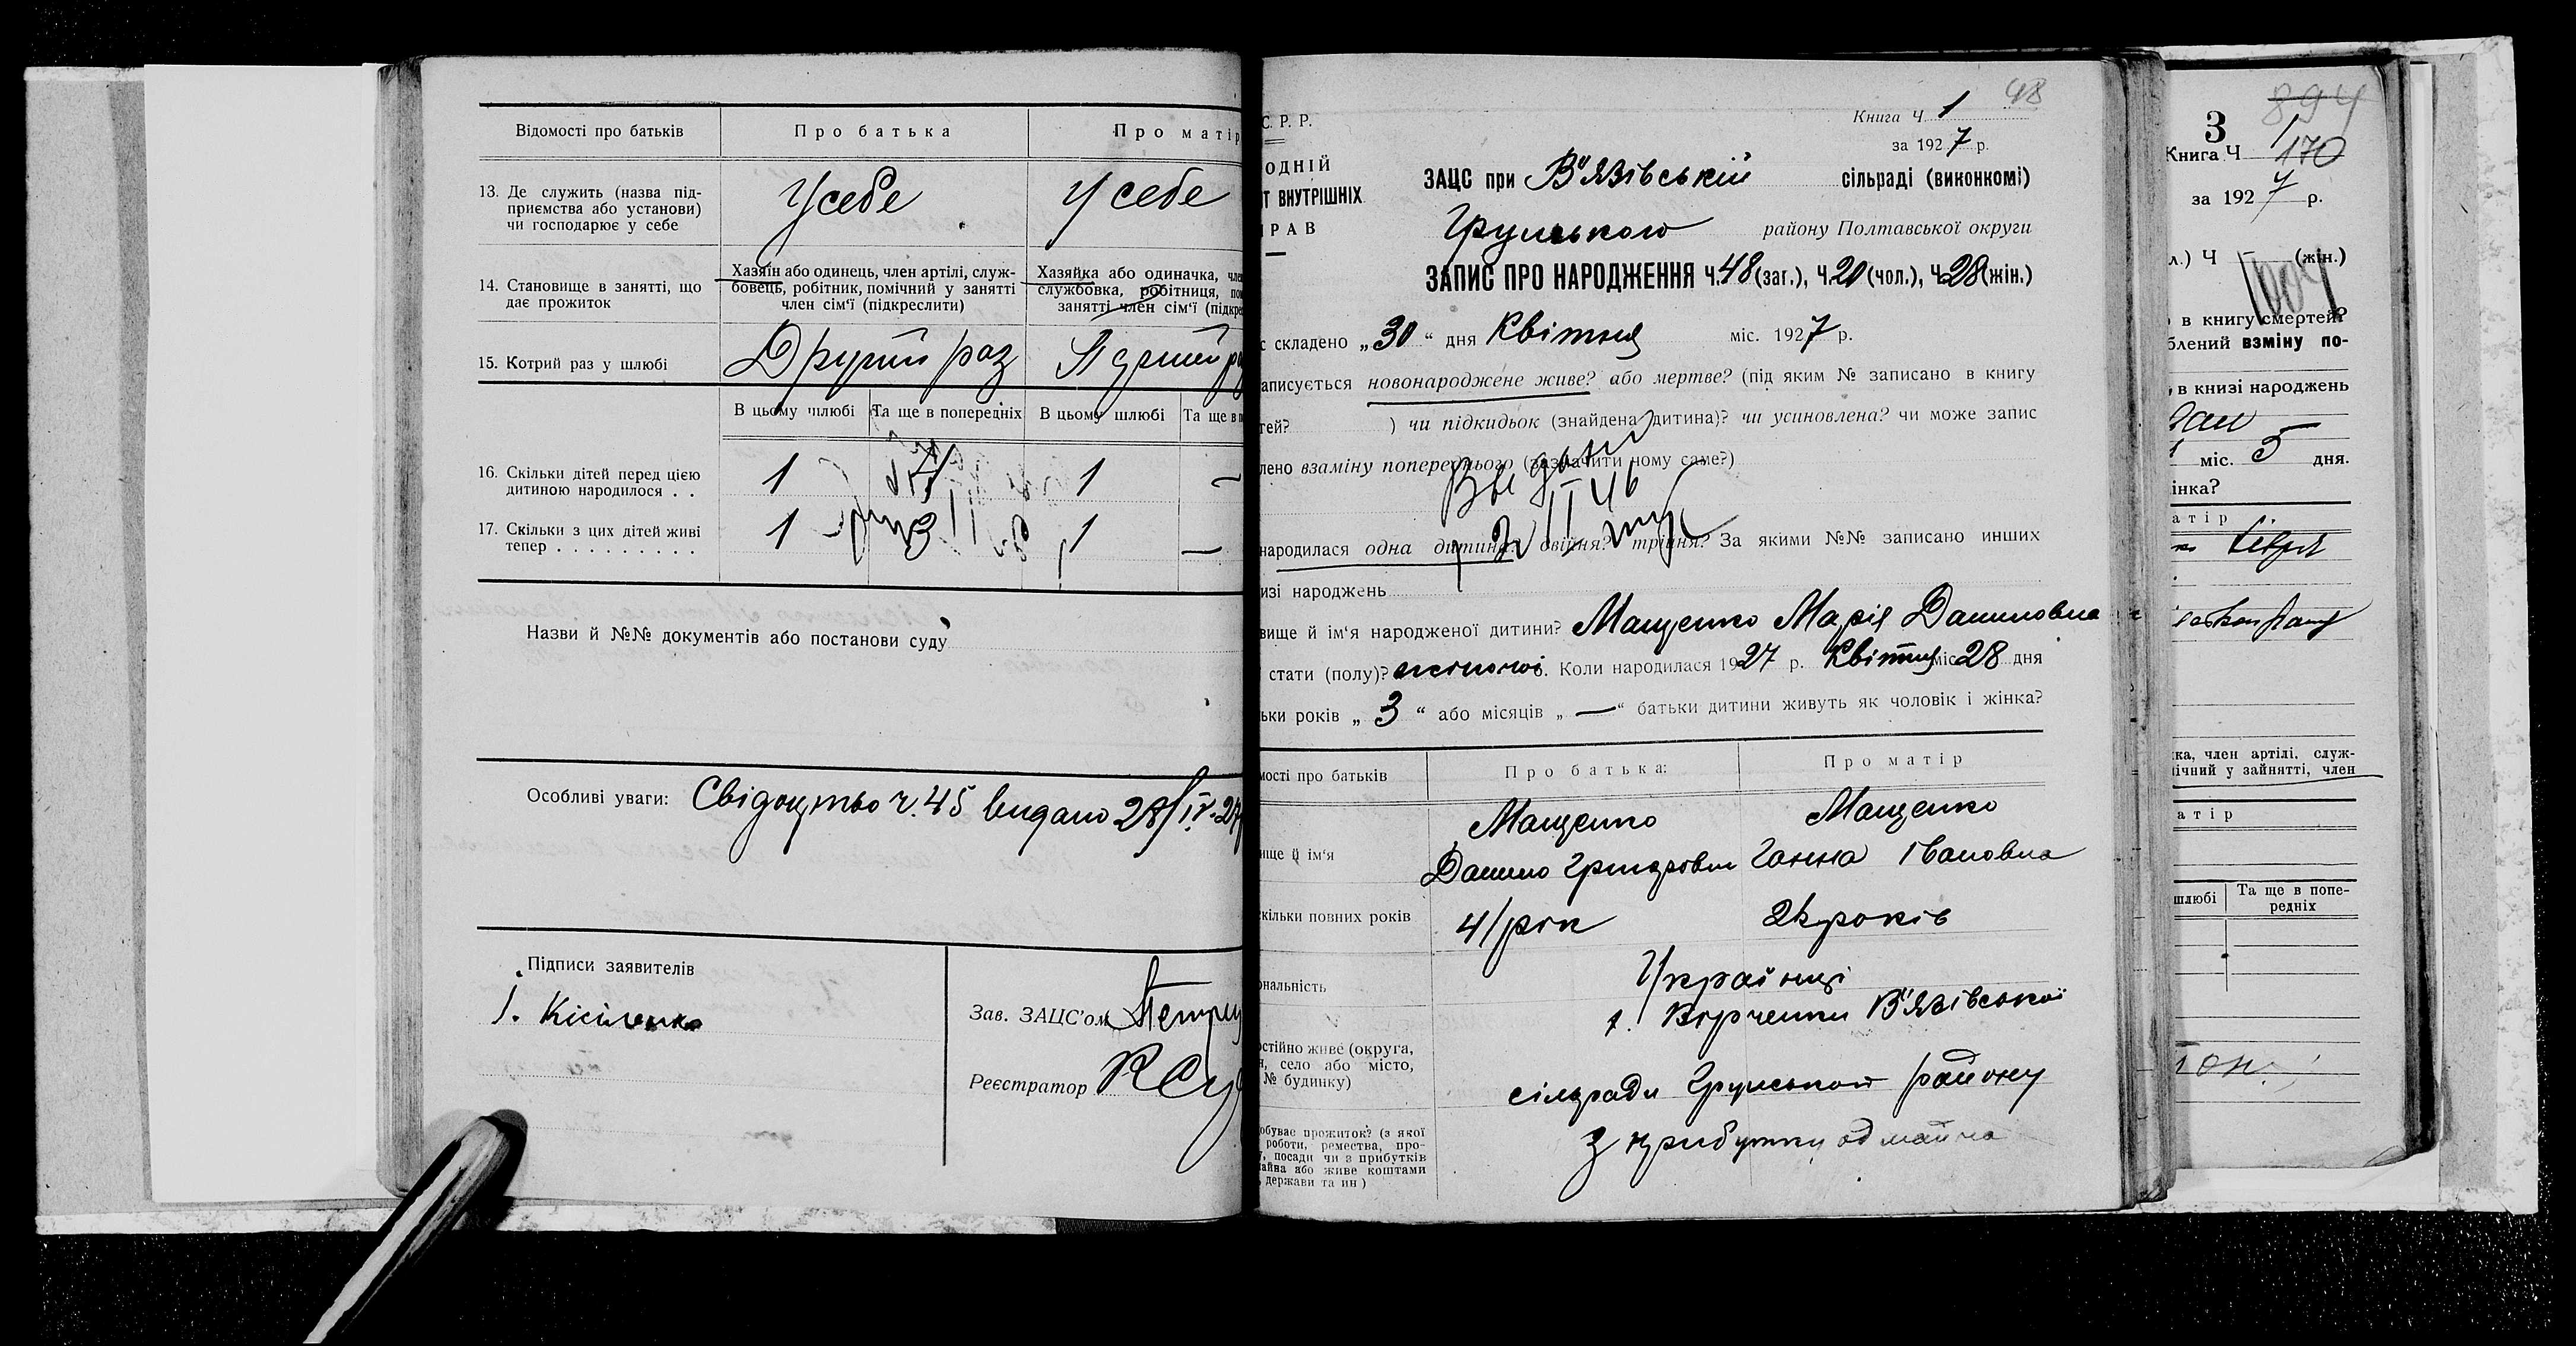 Відомості про батьків
Про батька
Про матір
13. Де служить (назва під-
приємства або установи)
чи господарює у себе
У себе
У себе
14. Становище в занятті, що
дає прожиток
Хазяїн або одинець, член артілі, служ-
бовець, робітник, помічний у занятті
член сім'ї (підкреслити)
Хазяйка або одиначка, чле
службовка, робітниця, по
занятті член сім'ї (підкре
15. Котрий раз у шлюбі
Другий раз
Перший ра
В цьому шлюбі
Та ще в попередніх
В цьому шлюбі
Та ще в п
16. Скільки дітей перед цією
дитиною народилося . .
1
1
—
17. Скільки з цих дітей живі
тепер . . . . . . . . .
1
3
1
—
Назви й №№ документів або постанови суду
Особливі уваги: Свідоцтво ч. 45 видано 28/IV-27
Підписи заявителів
І. Кісіленко
Зав. ЗАЦС'ом Петре
Реєстратор
48
С. Р. Р.
Книга Ч 1
за 1927 р.
ОДНІЙ
Т ВНУТРІШНІХ
РАВ
ЗАЦС при В'язівській сільраді (виконкомі)
Грунського району Полтавської округи
ЗАПИС ПРО НАРОДЖЕННЯ Ч.48 (заг.), Ч.20 (чол.), Ч.28 (жін.)
с складено „30“ дня Квітня міс. 1927 р.
аписується новонароджене живе? або мертве? (під яким № записано в книгу
тей? ) чи підкидьок (знайдена дитина)? чи усиновлена? чи може запис
лено взаміну попереднього (зазначити чому саме?)
Выдан
2 II 46
народилася одна дитина? двійня? трійня? За якими №№ записано инших
изі народжень
вище й ім'я народженої дитини? Мащенко Марія Даниловна
стати (полу)? жіночої. Коли народилася 1927 р. Квітня міс 28 дня
ьки років „3“ або місяців „—“ батьки дитини живуть як чоловік і жінка?
мості про батьків
Про батька:
Про матір
ище й ім'я
Мащенко
Данило Григорович
Мащенко
Ганна Івановна
кільки повних років
41 рік
років
ональність
Українці
остійно живе (округа,
н, село або місто,
№ будинку)
х. Вірченки В'язівської
сільради Грунського району
обуває прожиток? (з якої
роботи, ремества, про-
, посади чи з прибутків
айна або живе коштами
, держави та ин)
з прибутку од майна
3
894
Книга Ч 1
170
за 1927 р.
л.) Ч (жін.)
в книгу смертей?
блений взміну по-
, в книзі народжень
міс. 5 дня.
інка?
атір
ка, член артілі, служ-
ічний у зайнятті, член
атір
шлюбі
Та ще в попе-
редніх